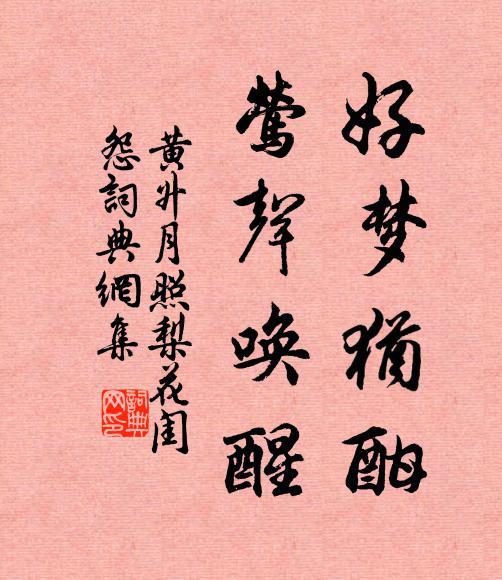 好梦犹酣
莺声唤醒
黄升月照梨花闺
怨词典网集
词典
网印